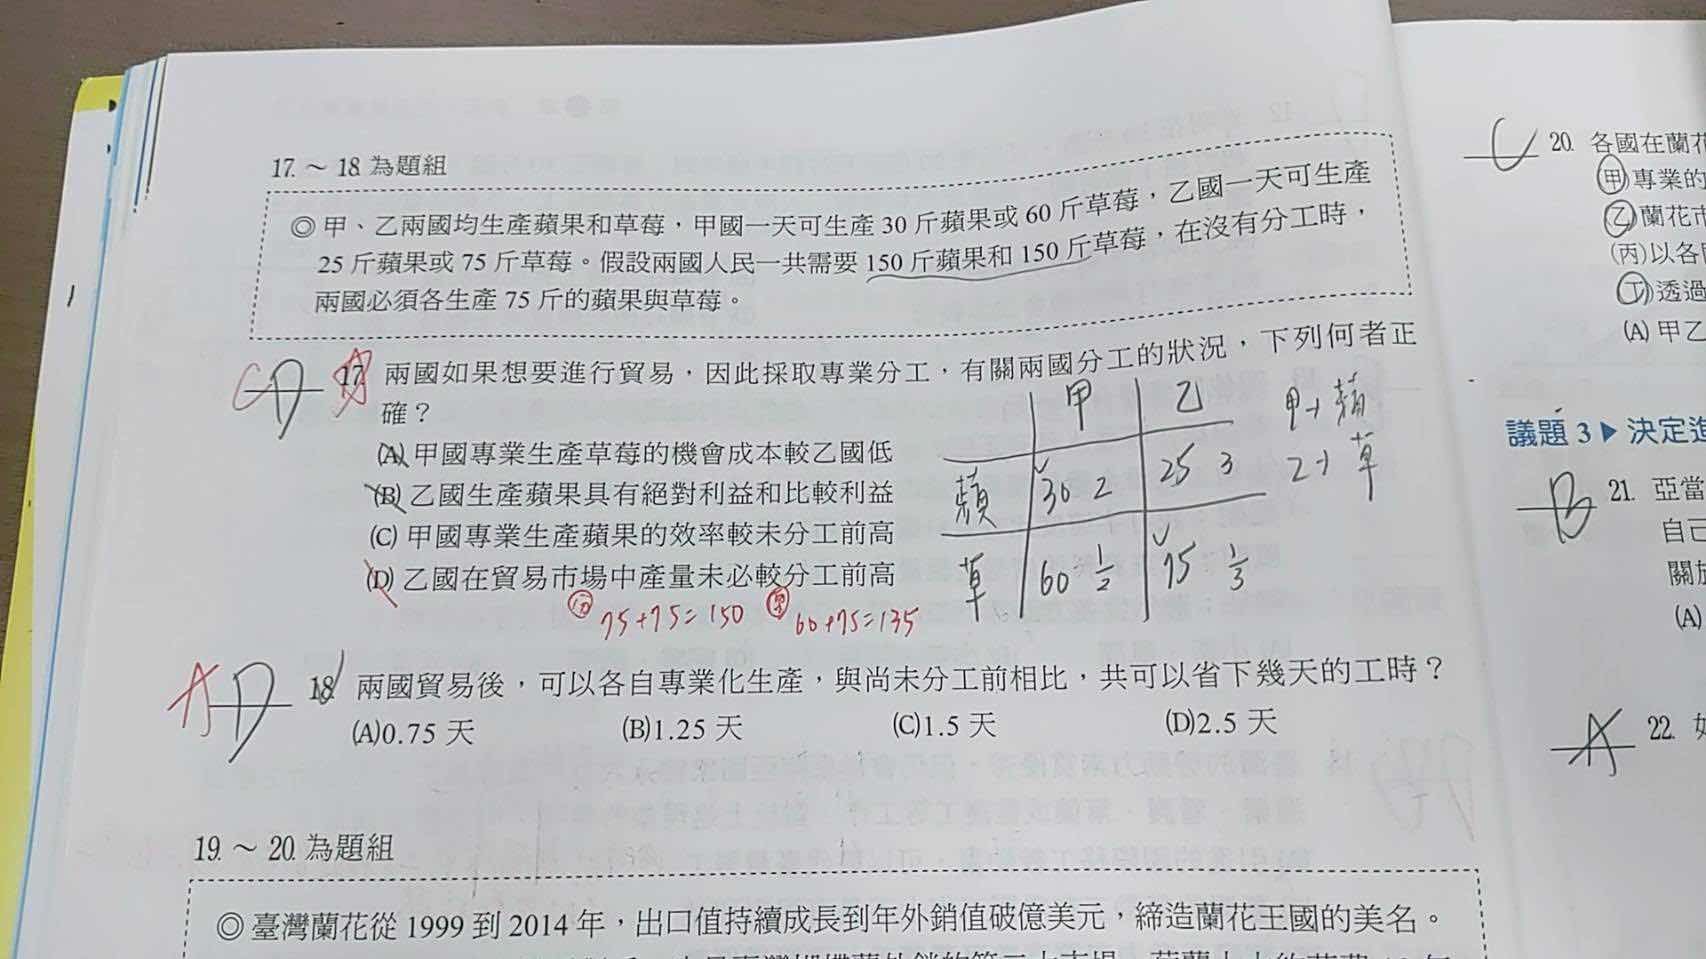 17. ～ 18. 為題組
◎ 甲、乙兩國均生產蘋果和草莓，甲國一天可生產 30 斤蘋果或 60 斤草莓，乙國一天可生產
25 斤蘋果或 75 斤草莓。假設兩國人民一共需要 150 斤蘋果和 150 斤草莓，在沒有分工時，
兩國必須各生產 75 斤的蘋果與草莓。
C D 17. 兩國如果想要進行貿易，因此採取專業分工，有關兩國分工的狀況，下列何者正
確？
(A) 甲國專業生產草莓的機會成本較乙國低
(B) 乙國生產蘋果具有絕對利益和比較利益
(C) 甲國專業生產蘋果的效率較未分工前高
(D) 乙國在貿易市場中產量未必較分工前高
甲 乙
蘋 30 2 25 3
草 60 1/2 75 1/3
甲→蘋
乙→草
分 75+75=150 單 60+75=135
A D 18. 兩國貿易後，可以各自專業化生產，與尚未分工前相比，共可以省下幾天的工時？
(A)0.75 天 (B)1.25 天 (C)1.5 天 (D)2.5 天
19. ～ 20. 為題組
◎ 臺灣蘭花從 1999 到 2014 年，出口值持續成長到年外銷值破億美元，締造蘭花王國的美名。
C 20. 各國在蘭花
(甲)專業的
(乙)蘭花市
(丙)以各國
(丁)透過
(A) 甲乙
議題 3 ▶ 決定進
B 21. 亞當
自己
關於
(A)
A 22. 如